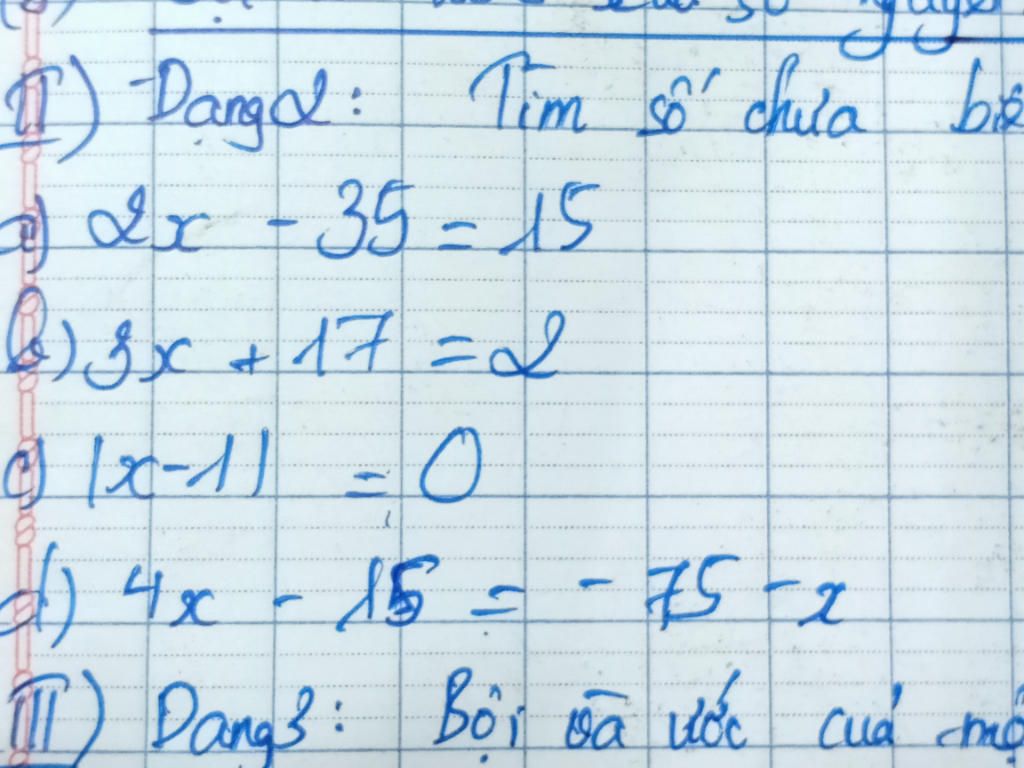 II) Dạng 2: Tìm số chưa
a) 2x - 35 = 15
b) 3x + 17 = 2
c) |x - 1| = 0
d) 4x - 15 = - 75 - x
III) Dạng 3: Bội và ước của